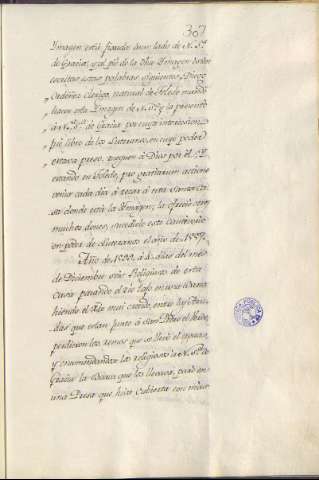 307
Ymagen esta fixado àun lado de N. Srª
de Gracia, y al pie de la dha Ymagen están
escritas estas palabras siguientes: Diego
Ordoñez Clerigo, natural de Toledo mandó
hacer esta Ymagen de N. Srª y la presentó
à N. Srª de Gracia por cuya intercesion
fué libre de los Luteranos, en cuyo poder
estava preso, rueguen à Dios por él. Y
estando en Toledo, por gratiarum actione
venia cada dia à rezar à esta Santa Ca
sa donde está la Ymagen, la ofreció
muchos dones, sucedióle este Cautiverio
en poder de Luteranos el año de 1587.
Año de 1588 à 4 dias del mes
de Diciembre seis Religiosos de esta
Casa pasando el Rio Tajo en una Barca
hiendo el Rio mui crecido, entre las
das que estan junto à San Pedro el
perdieron los remos que se llevó el
y encomendandose los religiosos à N. Srª de
Gracia la Barca que los llevava, paró en
una Presa que hera Cubierta con